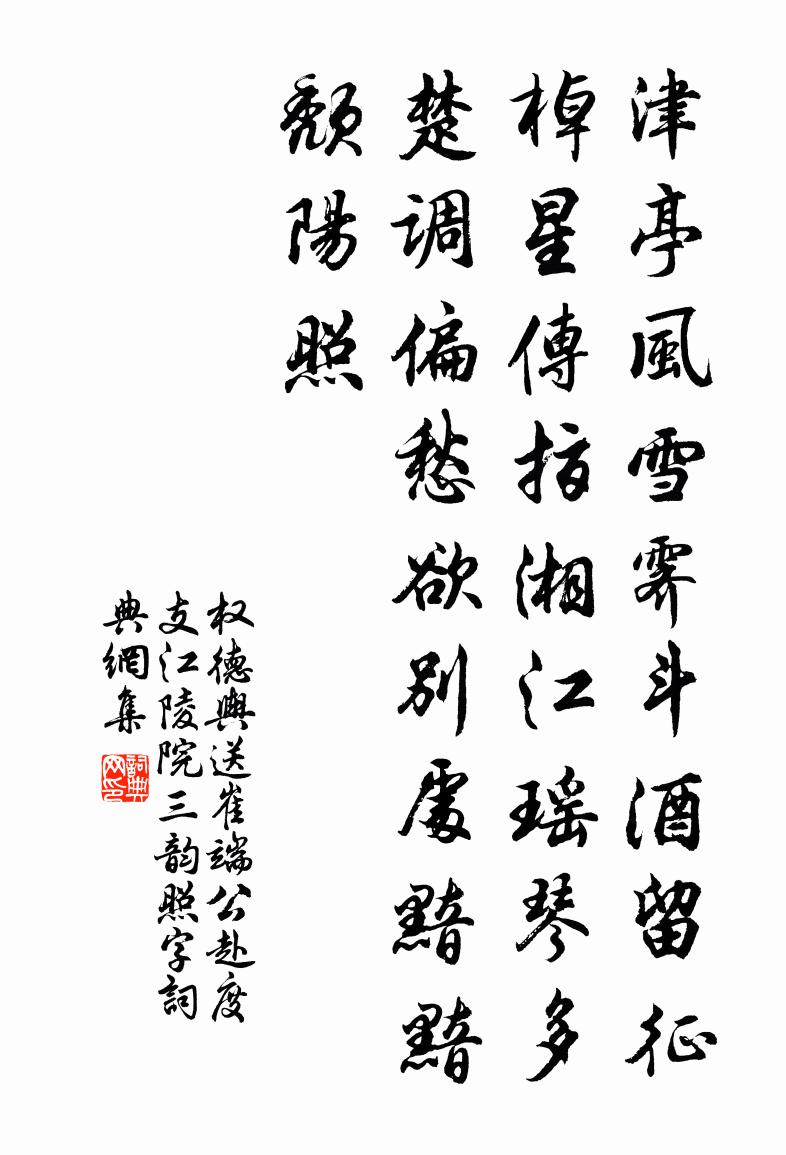 津亭風雪霽斗酒留征
棹星傳指湘江瑶琴多
楚调偏愁欲别處黯黯
頹陽照
权德輿送崔端公赴度
支江陵院三韵照字詞
典網集
詞典网印